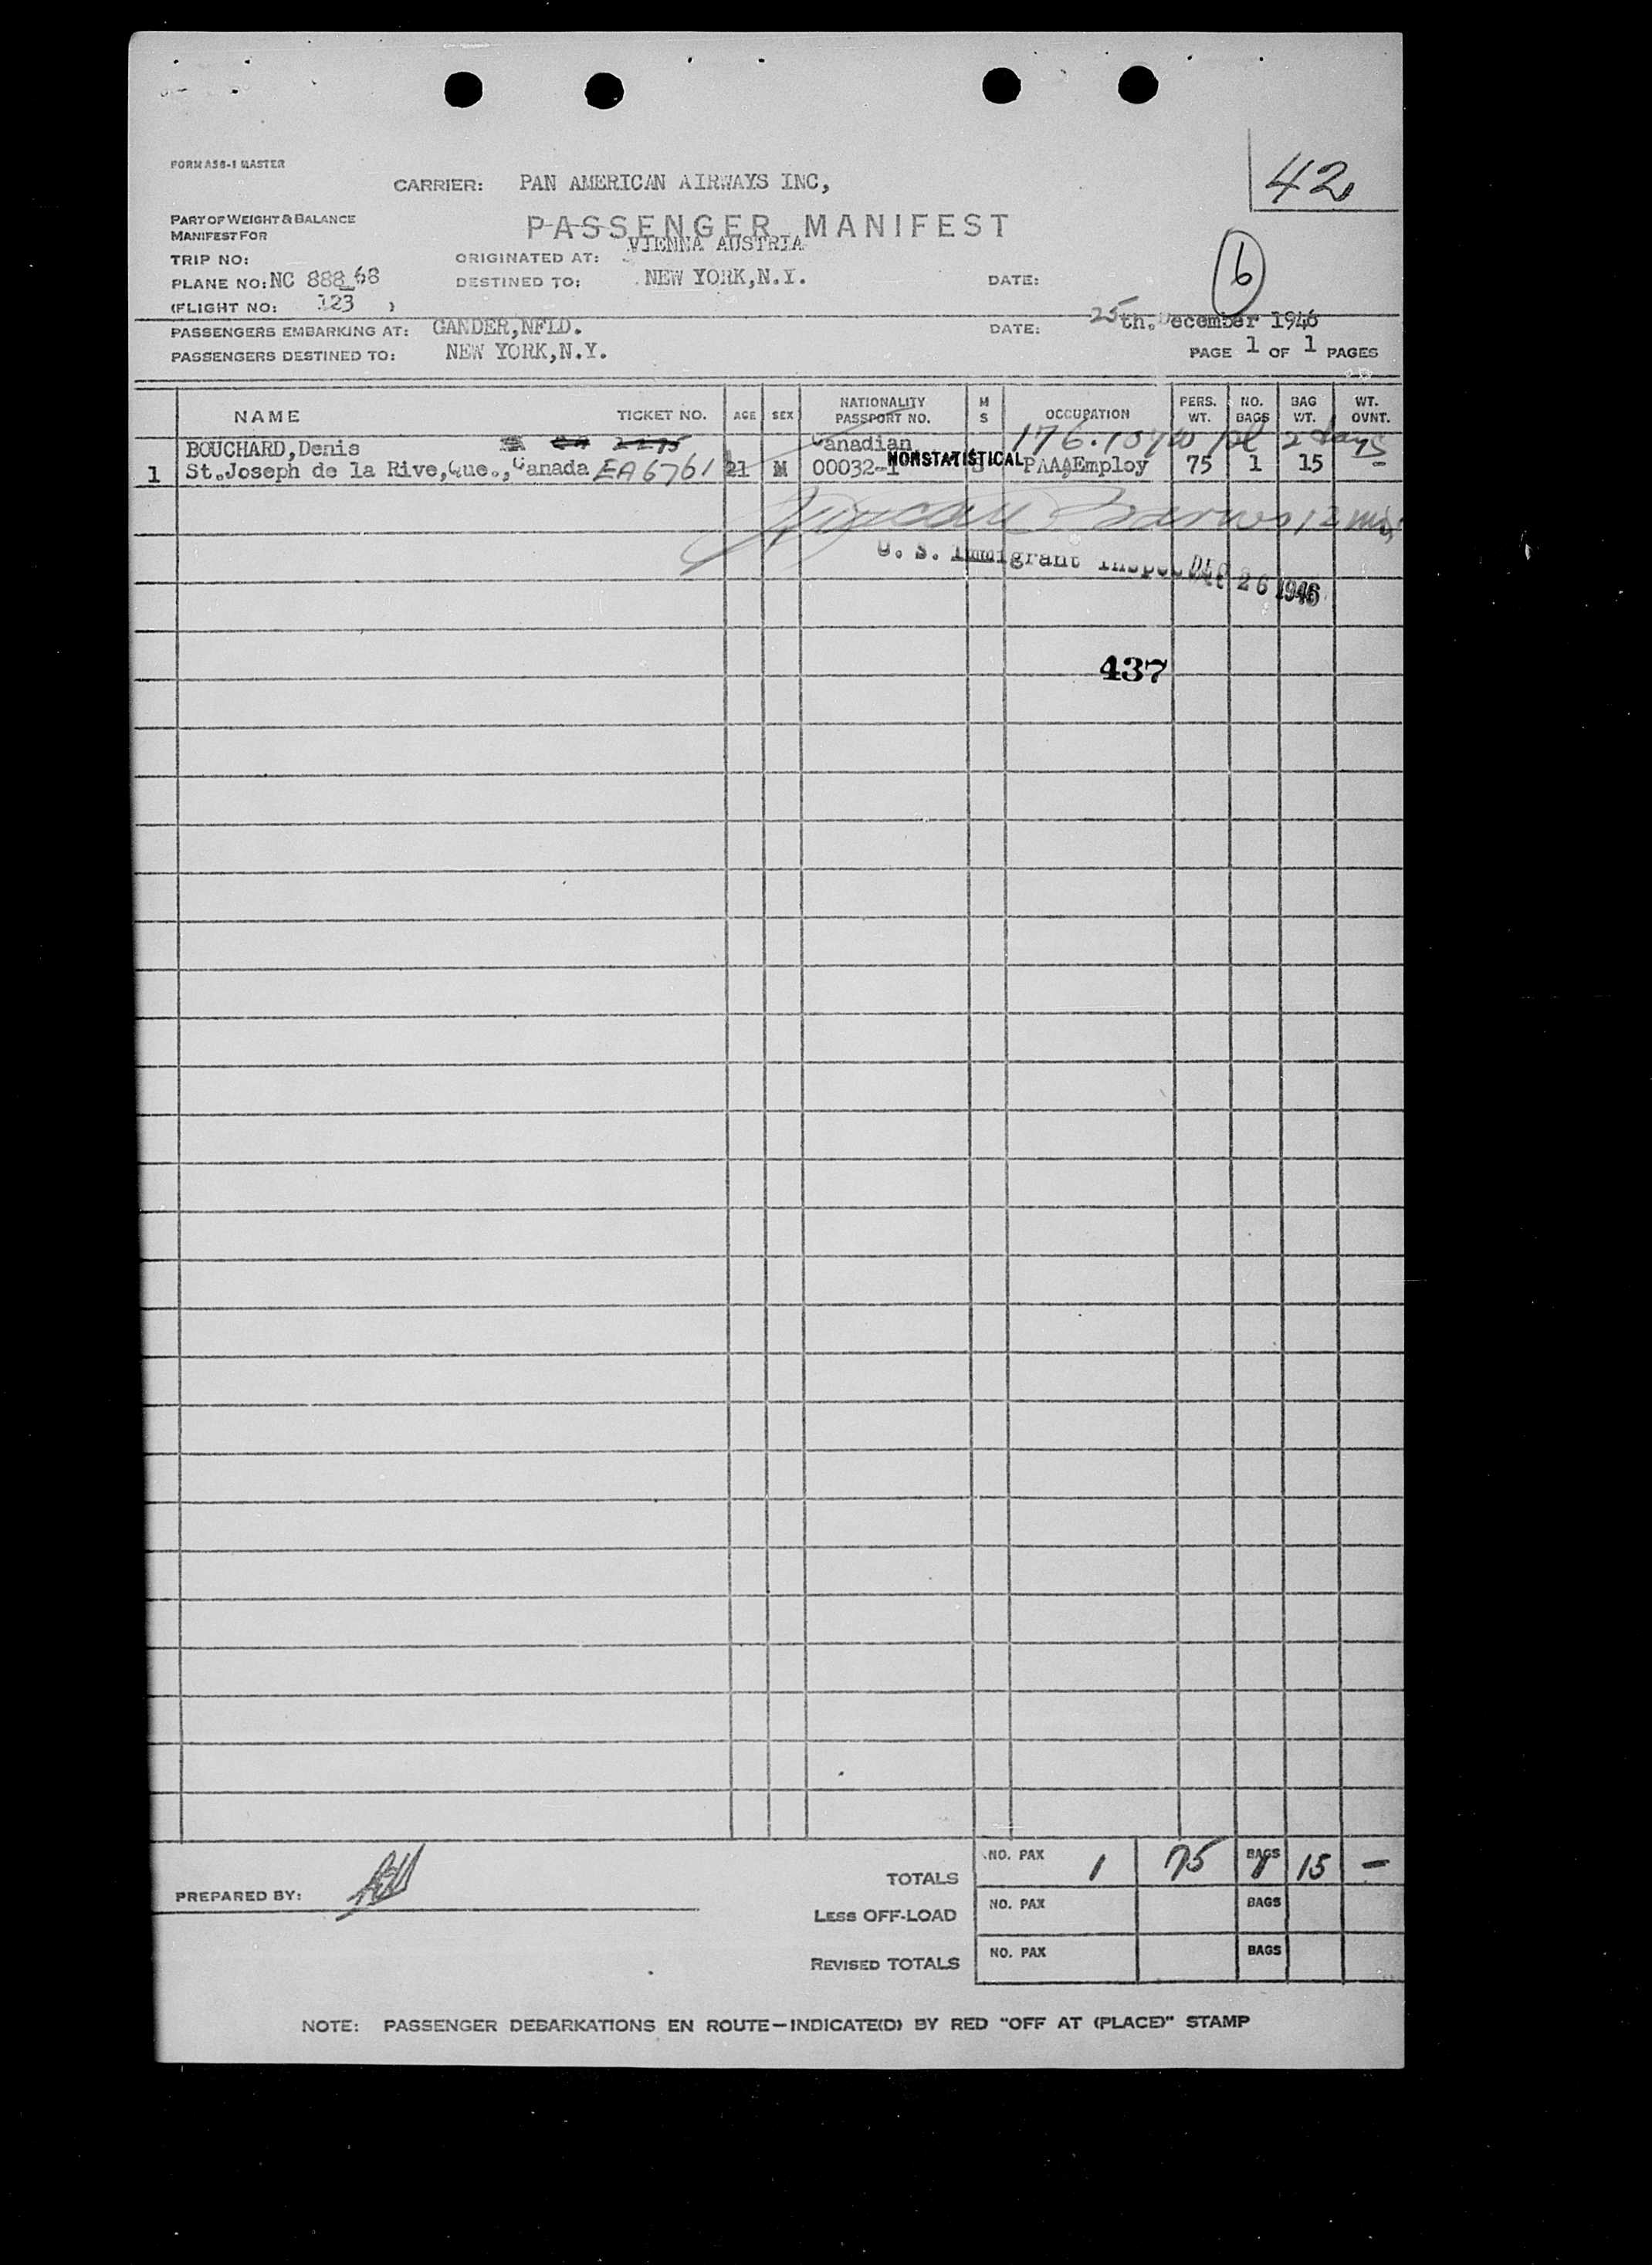 FORM A36-1 MASTER
42
CARRIER: PAN AMERICAN AIRWAYS INC,
PASSENGER MANIFEST
PART OF WEIGHT & BALANCE
MANIFEST FOR
VIENNA AUSTRIA
TRIP NO: ORIGINATED AT:
PLANE NO: NC 88868 DESTINED TO: NEW YORK, N.Y. DATE:
6
(FLIGHT NO: 123 )
PASSENGERS EMBARKING AT: GANDER, NFLD. DATE: 25th. December 1946
PASSENGERS DESTINED TO: NEW YORK, N.Y. PAGE 1 OF 1 PAGES
NAME TICKET NO. AGE SEX NATIONALITY PASSPORT NO. M S OCCUPATION PERS. WT. NO. BAGS BAG WT. WT. OVNT.
BOUCHARD, Denis Canadian 176.107 2 days
1 St. Joseph de la Rive, Que., Canada EA6761 21 M 00032-1 NONSTATISTICAL PAAA Employ 75 1 15 -
U. S. Immigrant Inspec DEC 26 1946
437
TOTALS NO. PAX 1 75 BAGS 1 15 -
PREPARED BY:
LESS OFF-LOAD NO. PAX BAGS
REVISED TOTALS NO. PAX BAGS
NOTE: PASSENGER DEBARKATIONS EN ROUTE—INDICATE(D) BY RED "OFF AT (PLACE)" STAMP